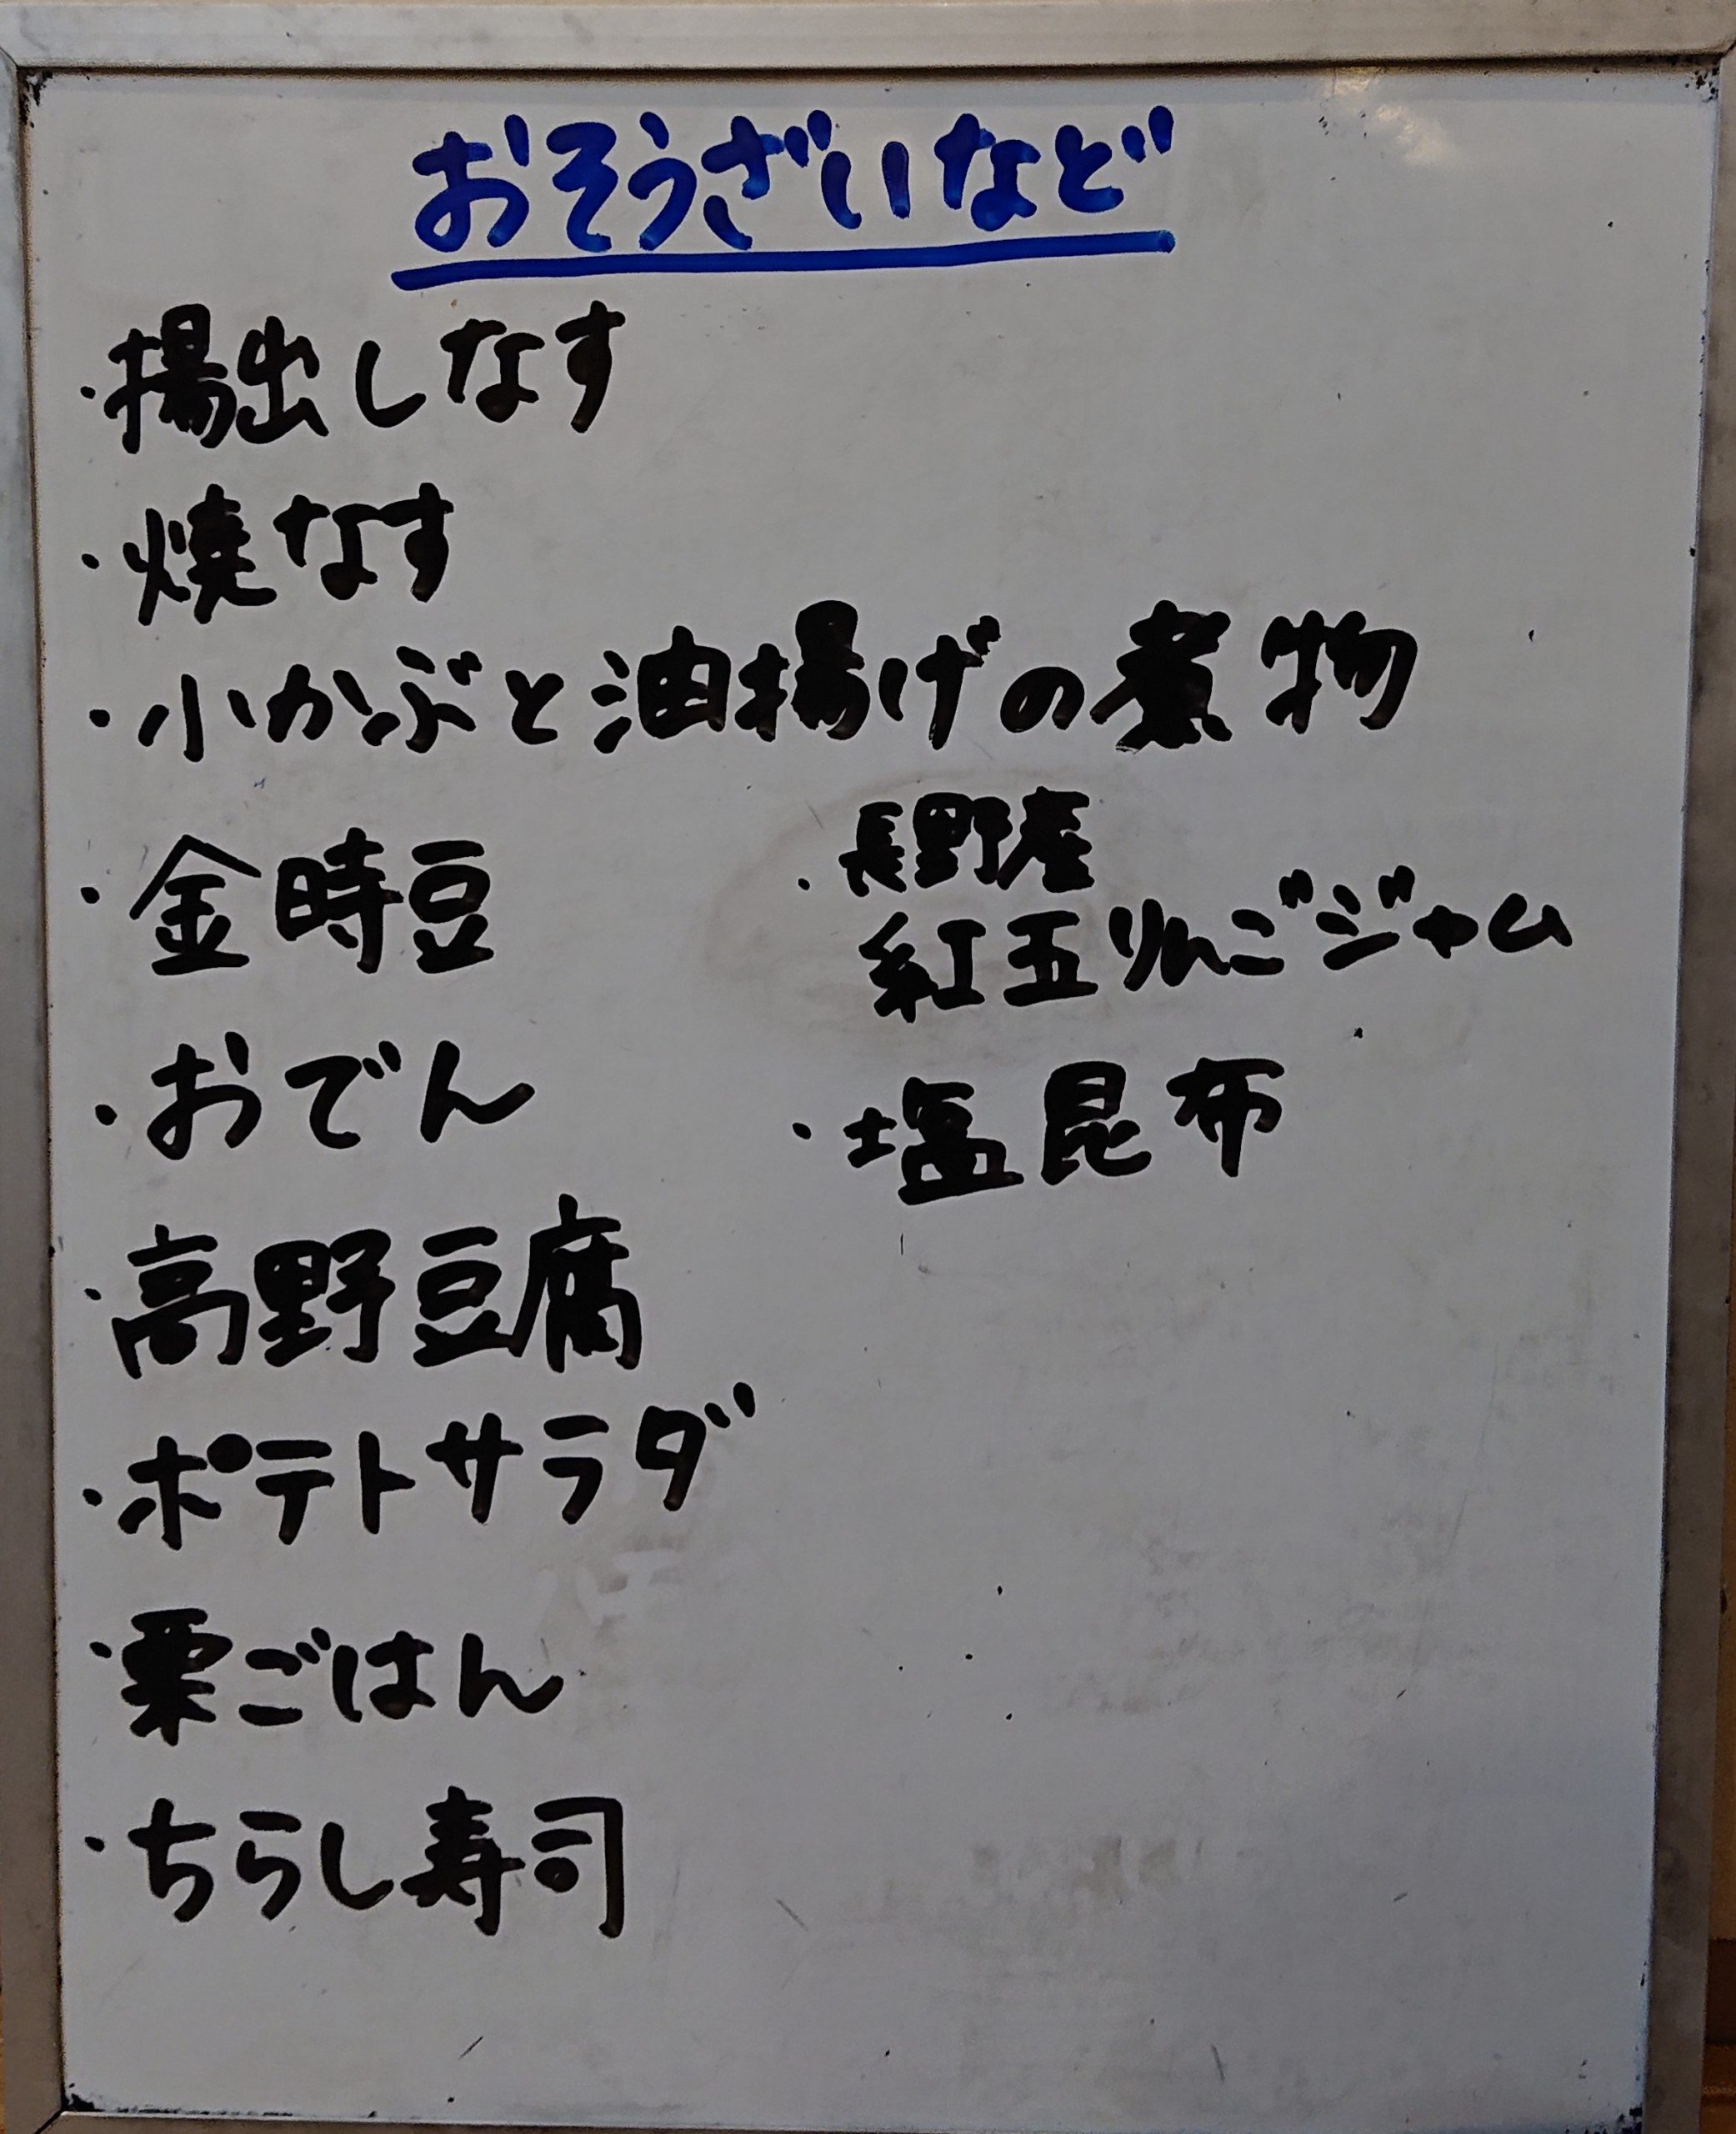 おそうざいなど
・揚出しなす
・焼なす
・小かぶと油揚げの煮物
・金時豆
・おでん
・高野豆腐
・ポテトサラダ
・栗ごはん
・ちらし寿司
・長野産
紅玉りんごジャム
・塩昆布